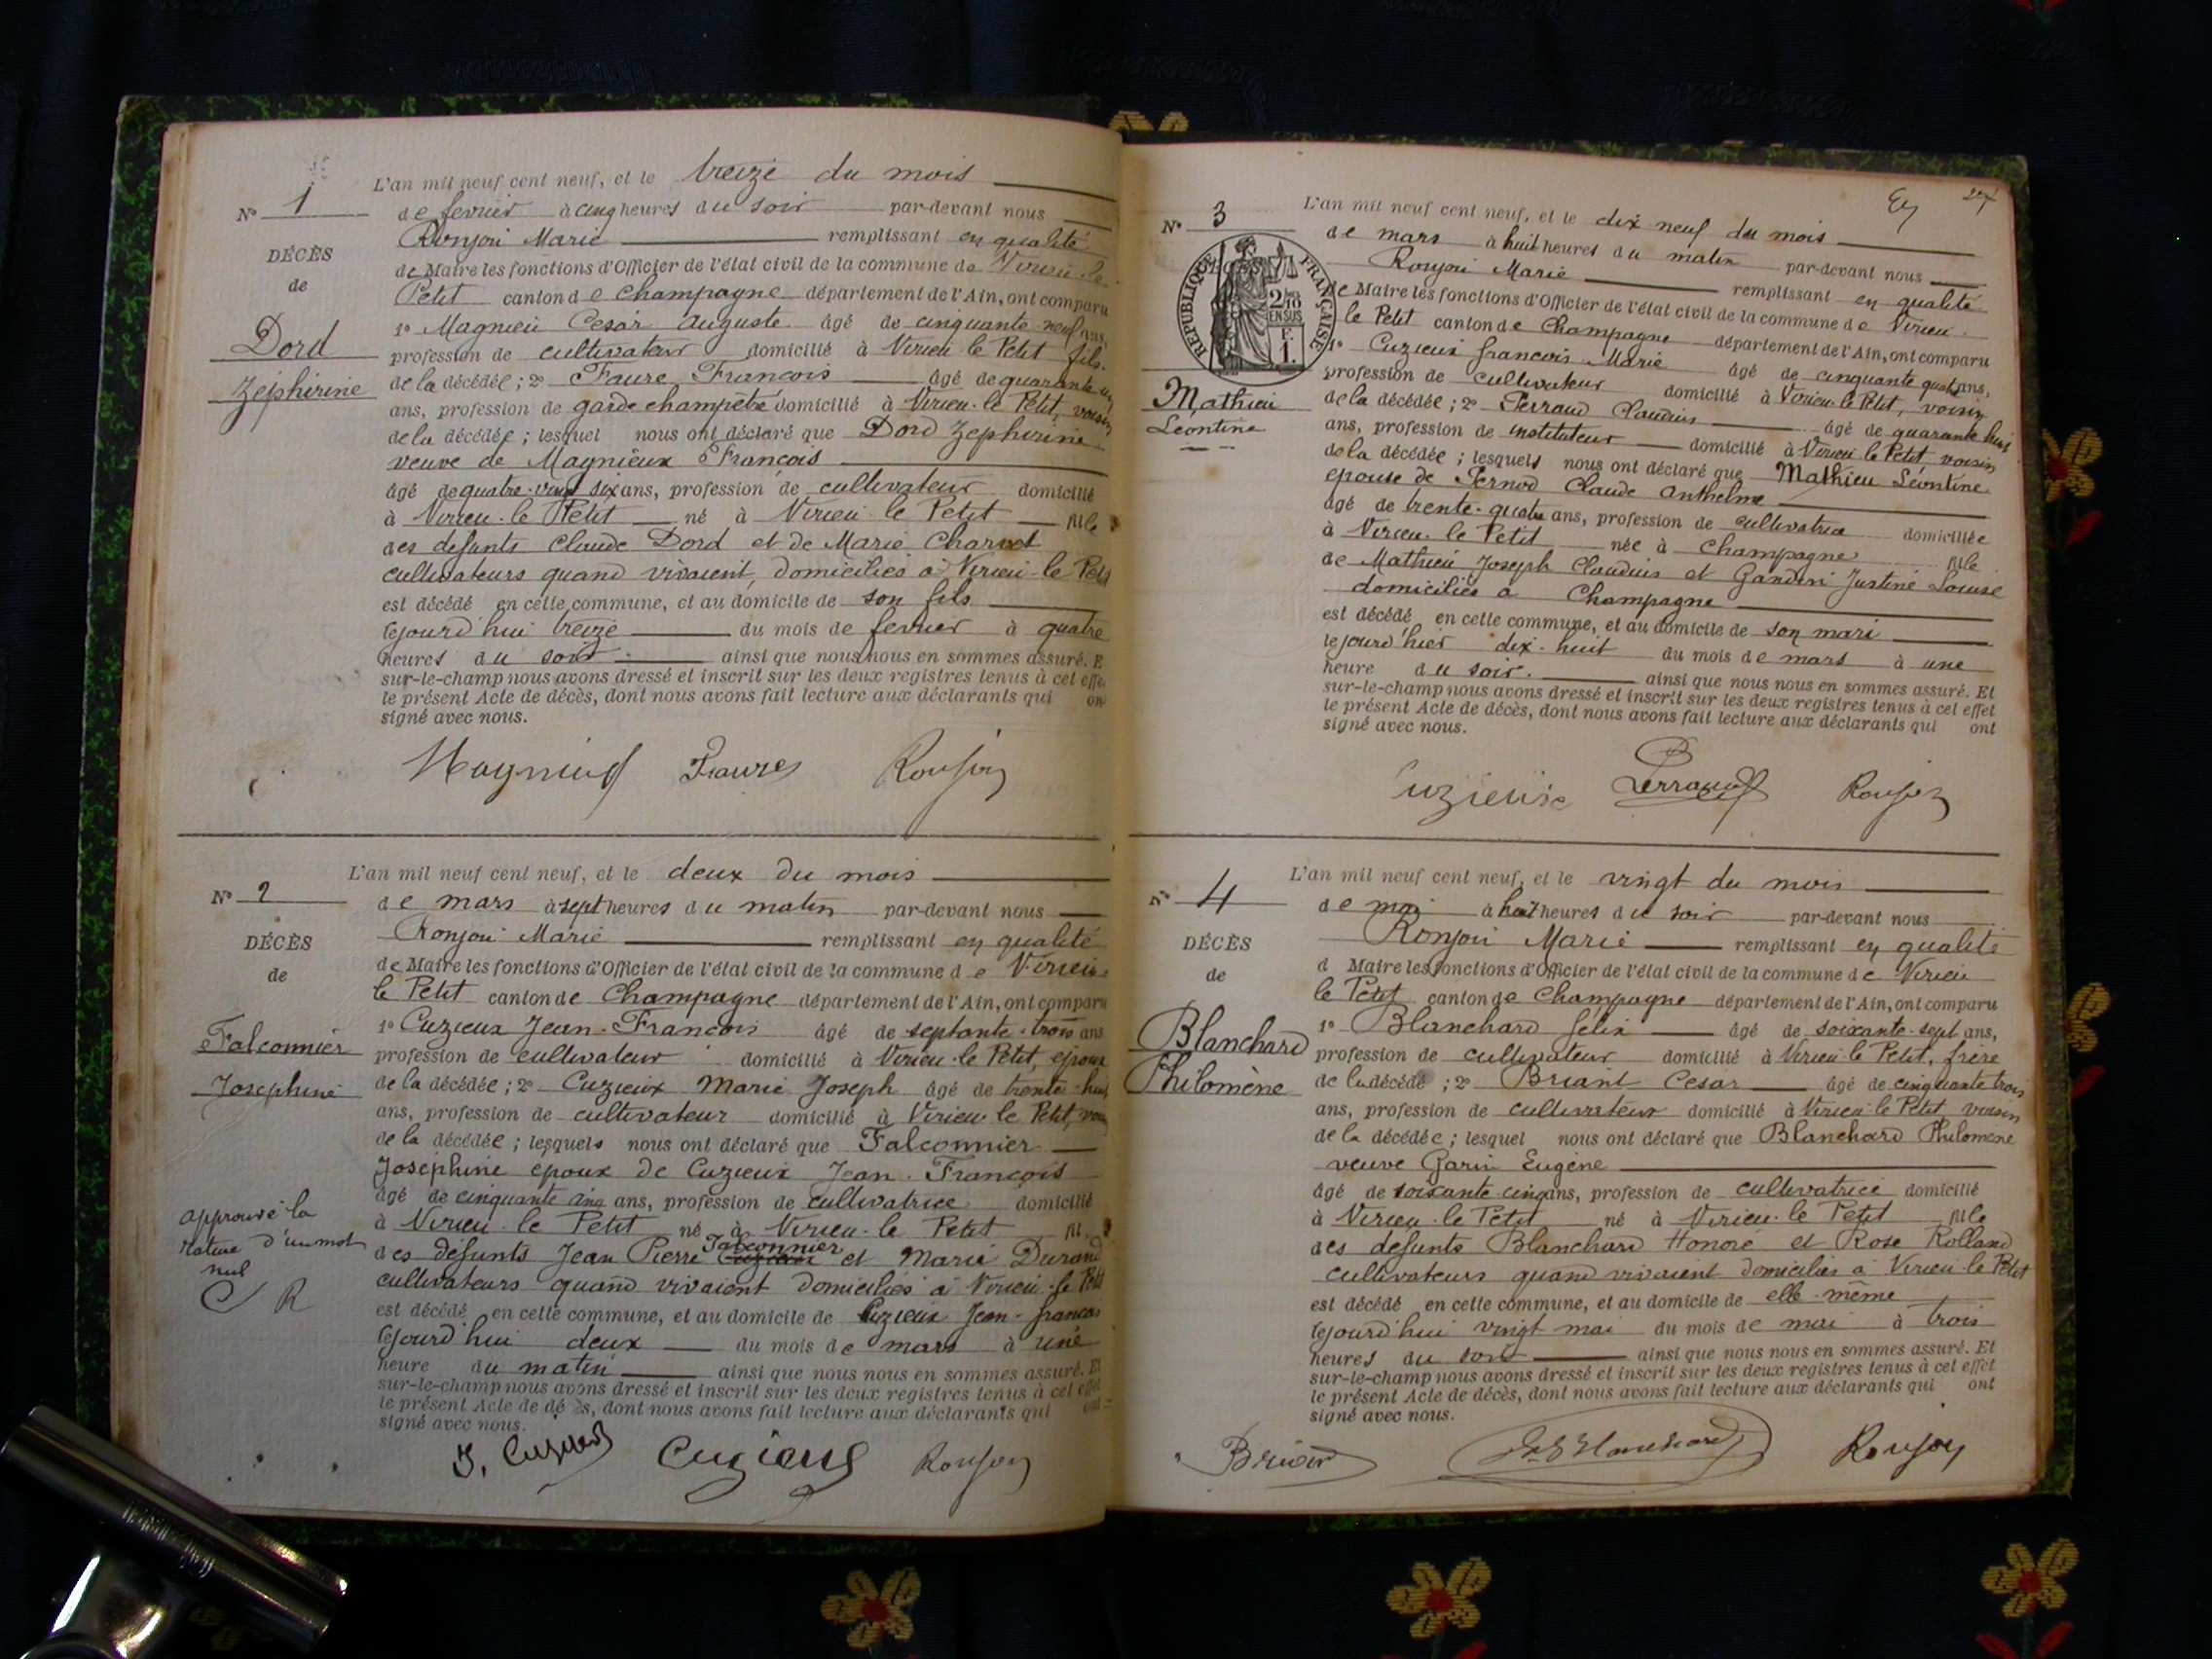 N° 1
DÉCÈS
de
Dord
Zéphirine
L'an mil neuf cent neuf, et le treize du mois
de fevrier à cinq heures du soir par-devant nous
Roujon Marie remplissant en qualité
de Maire les fonctions d'Officier de l'état civil de la commune de Virieu le
Petit canton de Champagne département de l'Ain, ont comparu
1° Magnieu Cesar Auguste âgé de cinquante neuf ans,
profession de cultivateur domicilié à Virieu le Petit fils
de la décédée ; 2° Faure François âgé de quarante
ans, profession de garde champêtre domicilié à Virieu-le Petit, voisin
de la décédée ; lesquel nous ont déclaré que Dord Zephirine
veuve de Magnieux François
âgé de quatre-vingt six ans, profession de cultivateur domicilié
à Virieu-le Petit né à Virieu le Petit fille
des defunts Claude Dord et de Marie Charvet
cultivateurs quand vivaient, domiciliés à Virieu-le Petit
est décédé en cette commune, et au domicile de son fils
lejourd'hui treize du mois de fevrier à quatre
heures du soir ainsi que nous nous en sommes assuré. E
sur-le-champ nous avons dressé et inscrit sur les deux registres tenus à cet effe
le présent Acte de décès, dont nous avons fait lecture aux déclarants qui on
signé avec nous.
Magnieu Faure Roujon
N° 2
DÉCÈS
de
Falconnier
Josephine
approuvé la
rature d'un mot
nul
C R
L'an mil neuf cent neuf, et le deux du mois
de mars à sept heures du matin par-devant nous
Roujon Marie remplissant en qualité
de Maire les fonctions d'Officier de l'état civil de la commune de Virieu
le Petit canton de Champagne département de l'Ain, ont comparu
1° Cuzieux Jean-François âgé de septante-trois ans
profession de cultivateur domicilié à Virieu-le Petit, epoux
de la décédée ; 2° Cuzieux Marie Joseph âgé de trente-huit
ans, profession de cultivateur domicilié à Virieu le Petit,
de la décédée ; lesquels nous ont déclaré que Falconnier
Joséphine epoux de Cuzieux Jean-François
âgé de cinquante cinq ans, profession de cultivatrice domicilié
à Virieu-le Petit né à Virieu-le Petit fil
des défunts Jean Pierre Falconnier et Marie Durand
cultivateurs quand vivaient domiciliés à Virieu-le Petit
est décédé en cette commune, et au domicile de Cuzieux Jean-francois
lejourd'hui deux du mois de mars à une
heure du matin ainsi que nous nous en sommes assuré. Et
sur-le-champ nous avons dressé et inscrit sur les deux registres tenus à cet effet
le présent Acte de décès, dont nous avons fait lecture aux déclarants qui ont
signé avec nous.
J. Cuzieux Cuzieux Roujon
27
N° 3
RÉPUBLIQUE FRANÇAISE
2/10
EN SUS
F.
1.
Mathieu
Léontine
L'an mil neuf cent neuf, et le dix neuf du mois
de mars à huit heures du matin par-devant nous
Roujon Marie remplissant en qualité
de Maire les fonctions d'Officier de l'état civil de la commune de Virieu
le Petit canton de Champagne département de l'Ain, ont comparu
1° Cuzieux francois-Marie âgé de cinquante quatre ans,
profession de cultivateur domicilié à Virieu-le Petit, voisin
de la décédée ; 2° Perraud Claudius âgé de quarante huit
ans, profession de instituteur domicilié à Virieu le Petit, voisin
de la décédée ; lesquels nous ont déclaré que Mathieu Léontine
epouse de Pernod Claude Anthelme
âgé de trente-quatre ans, profession de cultivatrice domiciliée
à Virieu-le Petit née à Champagne fille
de Mathieu Joseph Claudius et Justine Louise
domiciliés à Champagne
est décédé en cette commune, et au domicile de son mari
lejourd'hier dix-huit du mois de mars à une
heure du soir. ainsi que nous nous en sommes assuré. Et
sur-le-champ nous avons dressé et inscrit sur les deux registres tenus à cet effet
le présent Acte de décès, dont nous avons fait lecture aux déclarants qui ont
signé avec nous.
Cuzieux Perraud Roujon
N° 4
DÉCÈS
de
Blanchard
Philomène
L'an mil neuf cent neuf, et le vingt du mois
de mai à huit heures du soir par-devant nous
Roujon Marie remplissant en qualité
d Maire les fonctions d'Officier de l'état civil de la commune de Virieu
le Petit canton de Champagne département de l'Ain, ont comparu
1° Blanchard félix âgé de soixante-sept ans,
profession de cultivateur domicilié à Virieu-le Petit, frère
de la décédé ; 2° Briant Cesar âgé de cinquante trois
ans, profession de cultivateur domicilié à Virieu-le Petit, voisin
de la décédée ; lesquel nous ont déclaré que Blanchard Philomène
veuve Garin Eugène
âgé de soixante cinq ans, profession de cultivatrice domicilié
à Virieu-le Petit né à Virieu-le Petit fille
des defunts Blanchard Honoré et Rose Rolland
cultivateurs quand vivaient domiciliés à Virieu-le Petit
est décédé en cette commune, et au domicile de elle-même
lejourd'hui vingt mai du mois de mai à trois
heures du soir ainsi que nous nous en sommes assuré. Et
sur-le-champ nous avons dressé et inscrit sur les deux registres tenus à cet effet
le présent Acte de décès, dont nous avons fait lecture aux déclarants qui ont
signé avec nous.
Blanchard Roujon